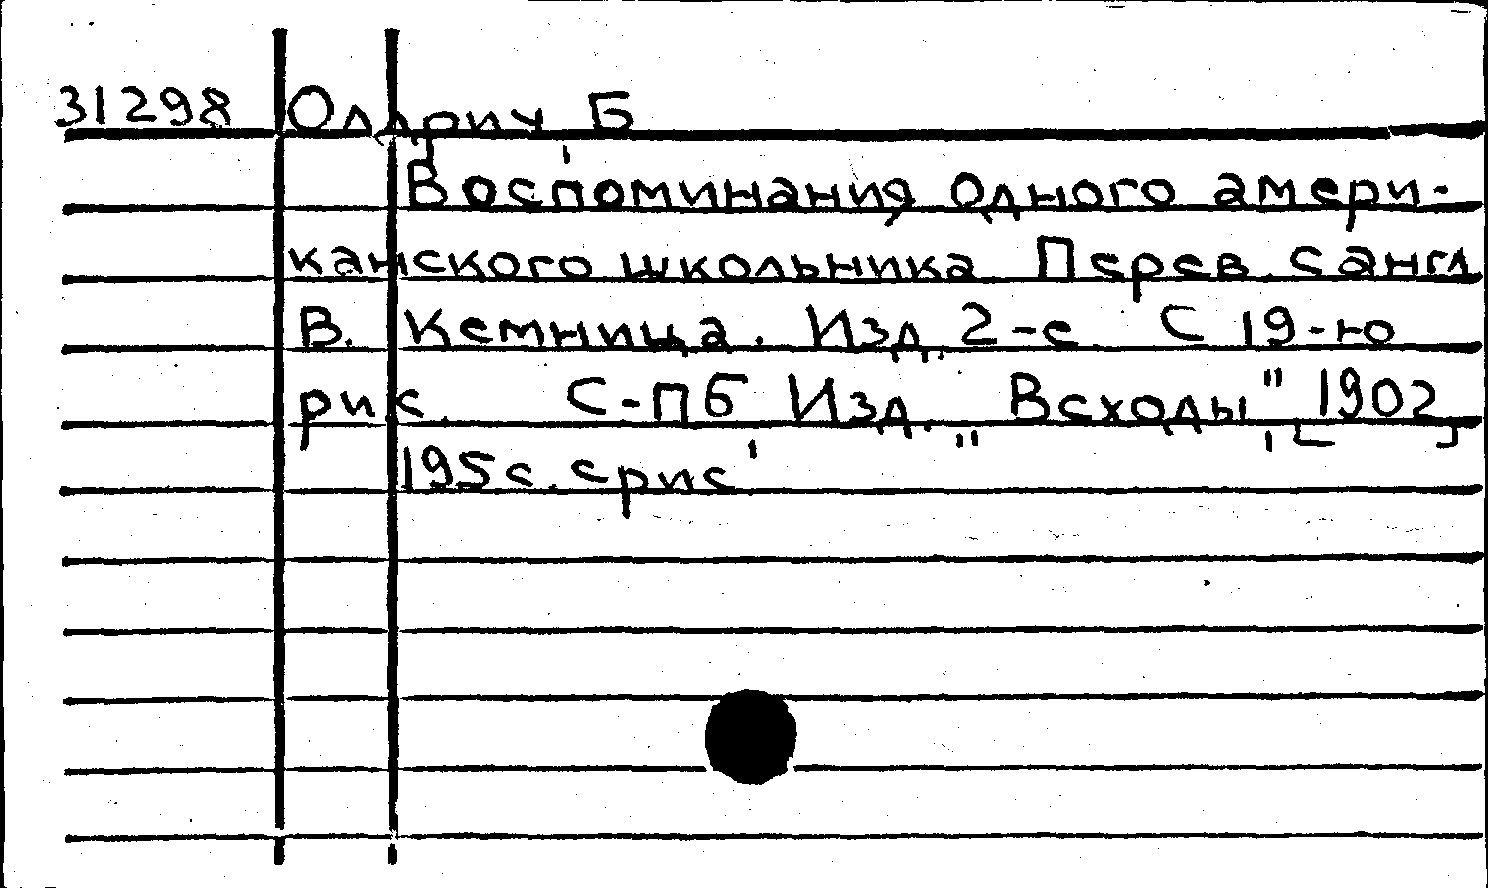 31298 Олдрич, Б
Воспоминания одного амери-
канского школьника. Перев. с англ
В. Кемница. Изд. 2-е. С 19-ю
рис. С-Пб Изд. „Всходы", [1902]
195 с. с рис.